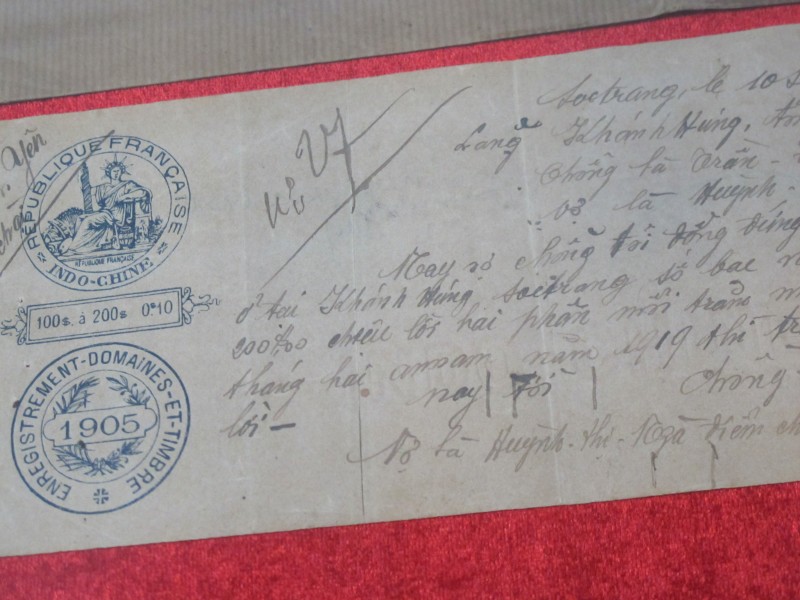 RÉPUBLIQUE FRANÇAISE
RÉPUBLIQUE FRANÇAISE
INDO-CHINE
100s. à 200s 0$10
ENREGISTREMENT-DOMAINES-ET-TIMBRE
1905
Yên
Soctrang, le 10
Lang Khánh Hưng,
Chồng là Trần
vợ là Huỳnh
Nay vợ chồng tôi đồng đứng
ở tại Khánh Hưng, Soctrang số bạc
200$00 chịu lời hai phân mỗi tháng
tháng hai annam năm 1919 thì
lời — nay tôi Chồng
Vợ là Huỳnh-thị-Ngà điểm